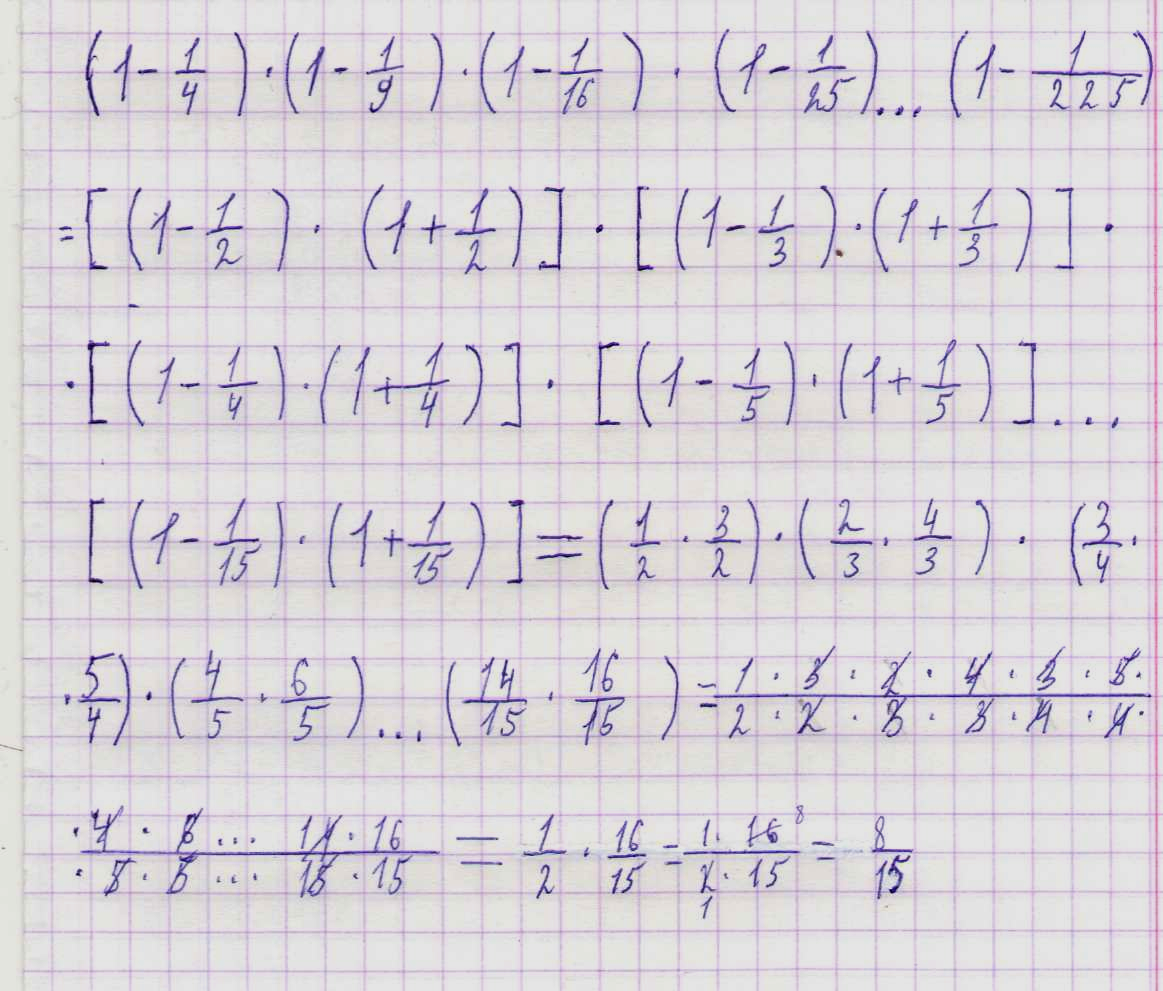 (1 - 1/4) · (1 - 1/9) · (1 - 1/16) · (1 - 1/25) ... (1 - 1/225)
= [(1 - 1/2) · (1 + 1/2)] · [(1 - 1/3) · (1 + 1/3)] ·
· [(1 - 1/4) · (1 + 1/4)] · [(1 - 1/5) · (1 + 1/5)] ...
[(1 - 1/15) · (1 + 1/15)] = (1/2 · 3/2) · (2/3 · 4/3) · (3/4 ·
· 5/4) · (4/5 · 6/5) ... (14/15 · 16/15) = 1 · 3 · 2 · 4 · 3 · 5 · / 2 · 2 · 3 · 3 · 4 · 4 ·
· 4 · 6 ... 14 · 16 / · 5 · 5 ... 15 · 15 = 1/2 · 16/15 = 1 · 16 8 / 2 · 15 1 = 8/15